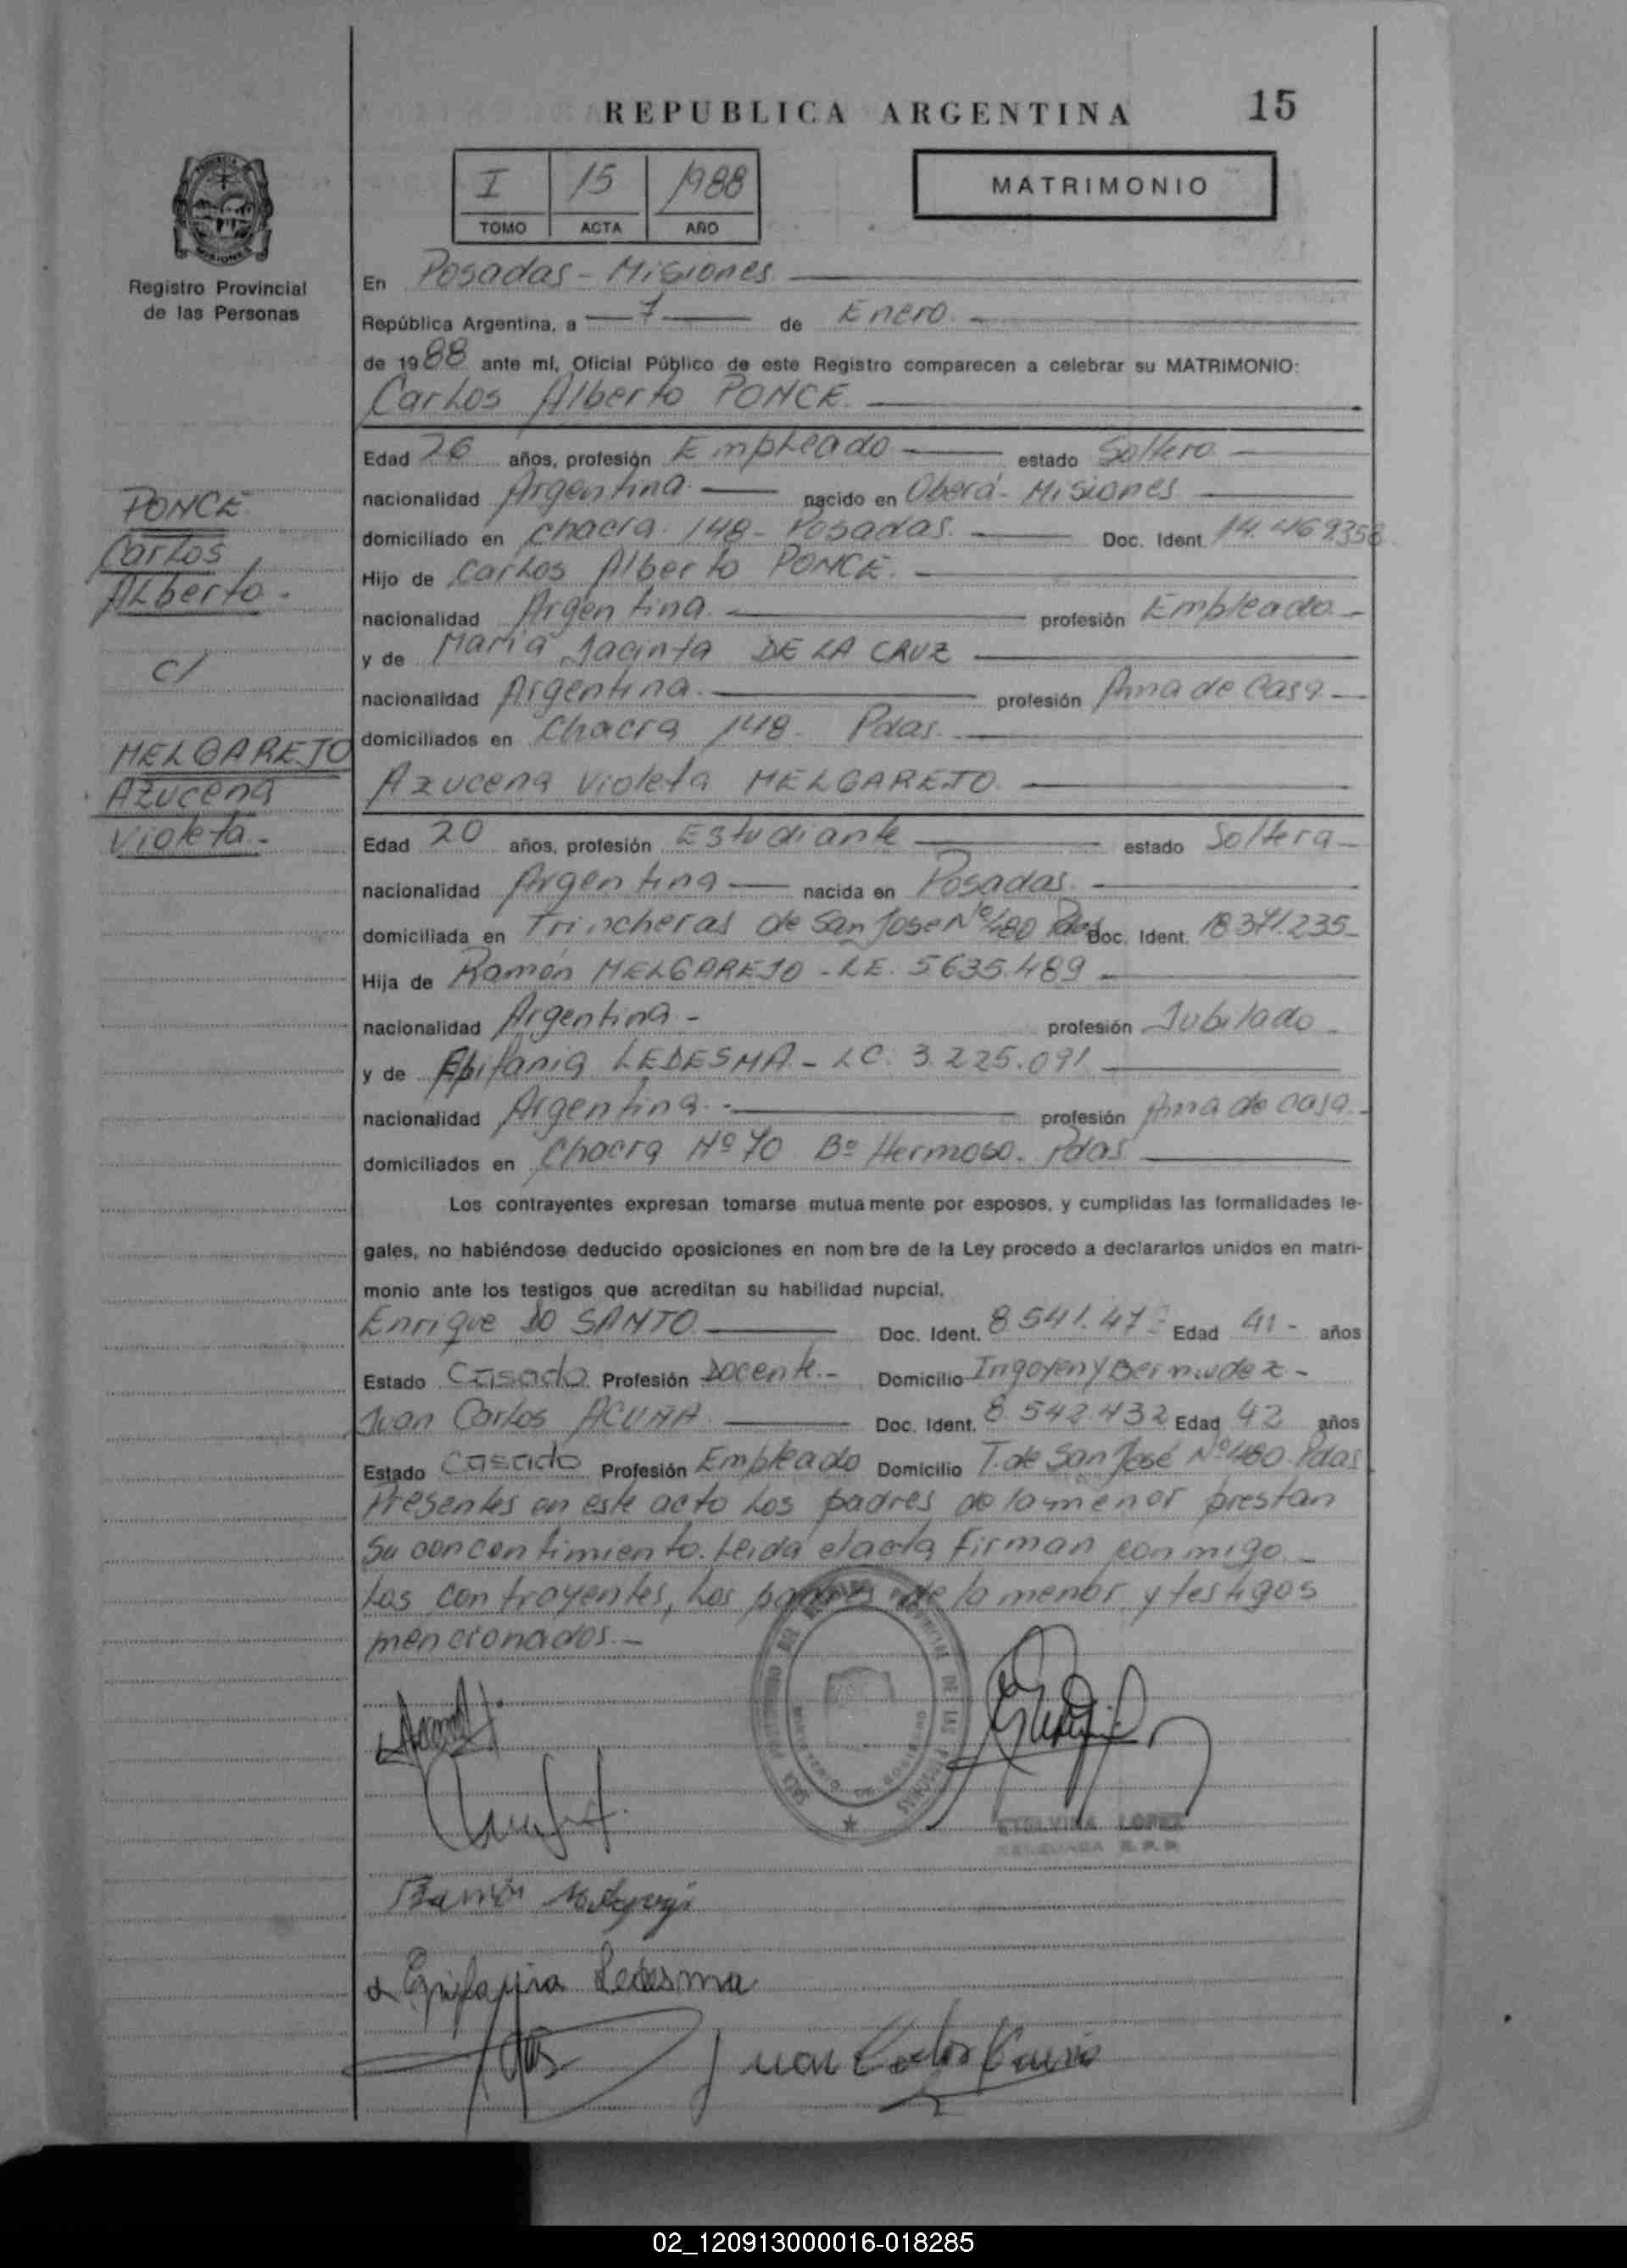 REPUBLICA ARGENTINA
15
I 15 1988
TOMO ACTA AÑO
MATRIMONIO
Registro Provincial
de las Personas
En Posadas - Misiones
República Argentina, a 7 de Enero
de 1988 ante mí, Oficial Público de este Registro comparecen a celebrar su MATRIMONIO:
Carlos Alberto PONCE
Edad 26 años, profesión Empleado estado Soltero
nacionalidad Argentina nacido en Oberá - Misiones
domiciliado en Chacra 148 - Posadas. Doc. Ident. 14.469358
Hijo de Carlos Alberto PONCE.
nacionalidad Argentina. profesión Empleado
y de Maria Jacinta DE LA CRUZ
nacionalidad Argentina. profesión Ama de Casa
domiciliados en Chacra 148. Pdas.
PONCE
Carlos
Alberto.
c/
MELGAREJO
Azucena
Violeta.
Azucena Violeta MELGAREJO.
Edad 20 años, profesión Estudiante estado Soltera
nacionalidad Argentina nacida en Posadas.
domiciliada en Trincheras de San Jose Nº 480 Pdas Doc. Ident. 18371.235
Hija de Ramón MELGAREJO - L.E. 5.635.489
nacionalidad Argentina - profesión Jubilado
y de Epifania LEDESMA - L.C. 3.225.091
nacionalidad Argentina. profesión Ama de casa
domiciliados en Chacra Nº 70 Bº Hermoso. Pdas
Los contrayentes expresan tomarse mutua mente por esposos, y cumplidas las formalidades le-
gales, no habiéndose deducido oposiciones en nom bre de la Ley procedo a declararlos unidos en matri-
monio ante los testigos que acreditan su habilidad nupcial.
Enrique DO SANTO Doc. Ident. 8.541.47 Edad 41 - años
Estado Casado Profesión Docente.- Domicilio Irigoyen y Bermudez -
Juan Carlos ACUÑA Doc. Ident. 8.542.432 Edad 42 años
Estado Casado Profesión Empleado Domicilio T. de San José Nº 480 Pdas
Presentes en este acto los padres de la menor prestan
su concentimiento. Leida el acta firman conmigo
los contrayentes, los padres de la menor y testigos
mencionados.-
ETELVINA LOPEZ
Ramón Melgarejo
Epifania Ledesma
Juan Carlos Acuña
02_120913000016-018285